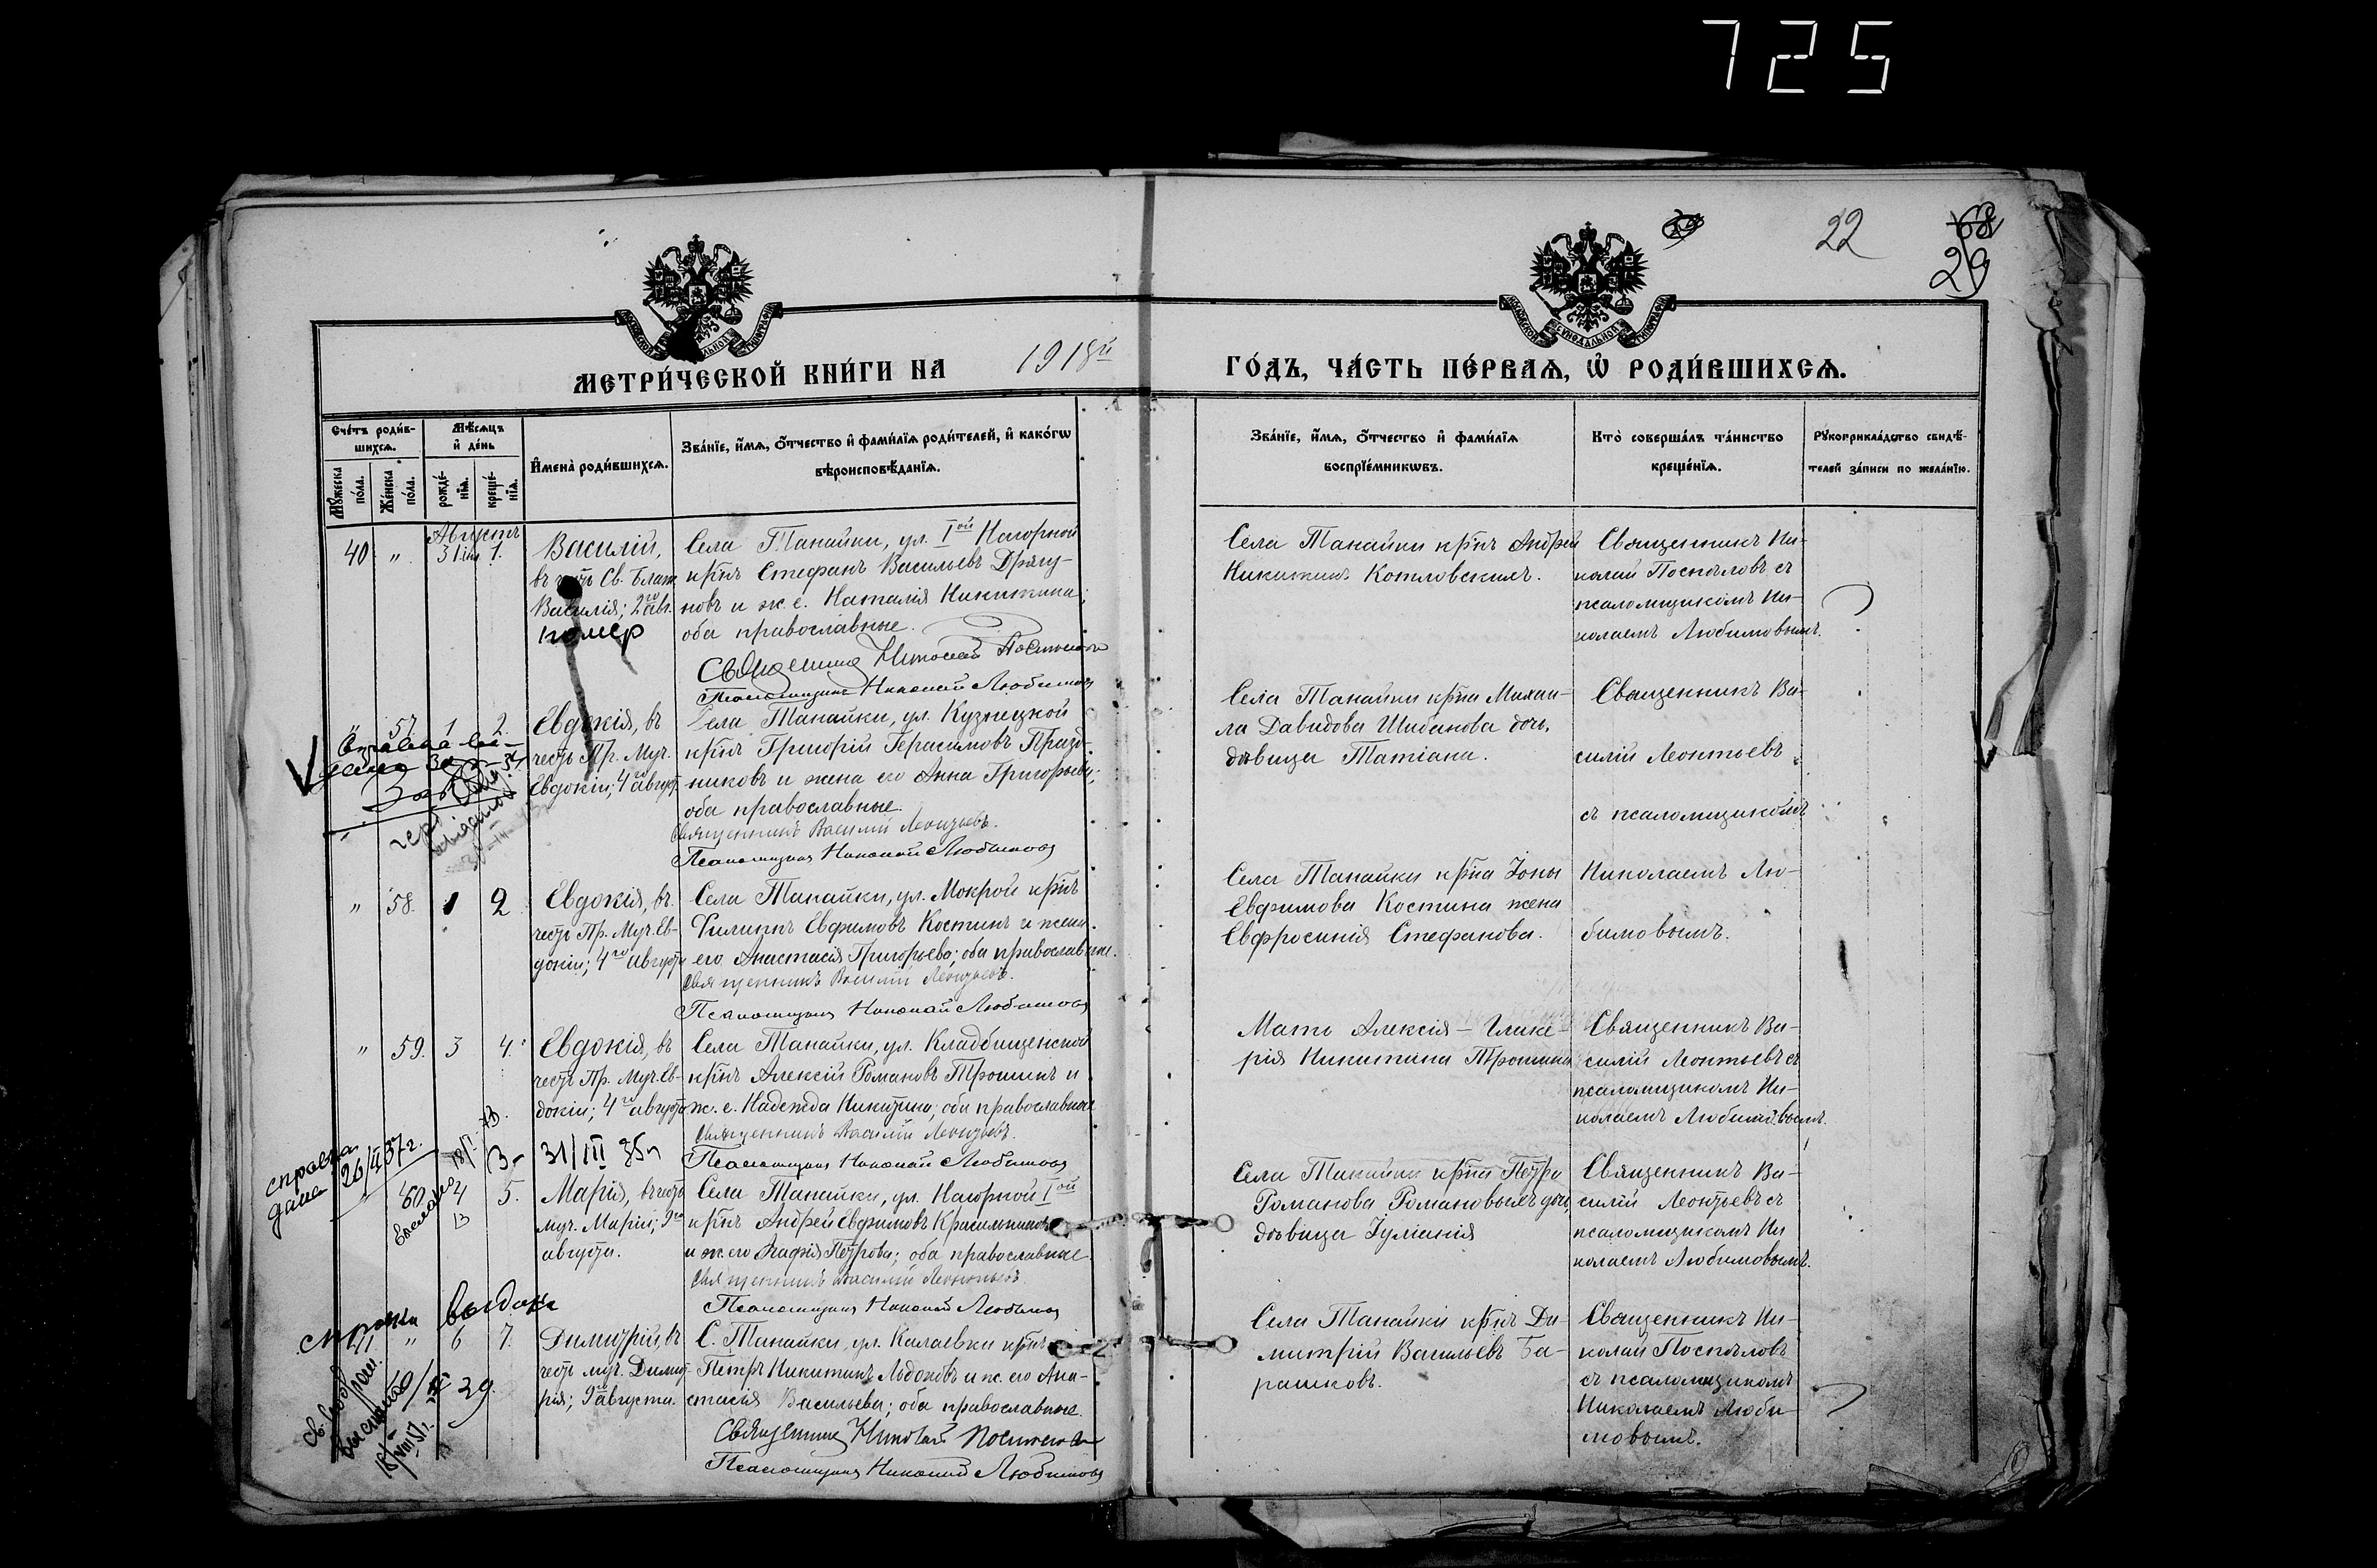 725
22
68
29
МЕТРИ́ЧЕСКОЙ КНИ́ГИ НА 1918й ГО́ДЪ, ЧА́СТЬ ПЕ́РВАѦ, Ѡ҆ РОДИ́ВШИХСѦ.
Сче́тъ роди́в-
шихсѧ.
Мѣ́сѧцъ
и҆ де́нь
И҆мена̀ роди́вшихсѧ.
Зва́нїе, и҆́мѧ, ѻ҆́тчество и҆ фами́лїѧ роди́телей, и҆ како́гѡ
вѣроисповѣ́данїѧ.
Мꙋ́жеска
по́ла.
Же́нска
по́ла.
рожде́-
нїѧ.
креще́-
нїѧ.
Зва́нїе, и҆́мѧ, ѻ҆́тчество и҆ фами́лїѧ
воспрїе́мникѡвъ.
Кто̀ соверша́лъ та́инство
креще́нїѧ.
Рꙋкоприкла́дство свидѣ́-
телей за́писи по жела́нїю.
Августъ
40 " 31 іюл. 1.
Василій,
въ честь Св. Блаж.
Василія; 2го авг.
помер
Села Танайки, ул. Iой Нагорной
кр̃нъ Стефанъ Васильевъ Дрягу-
новъ и ж. е. Наталія Никитина;
оба православные.
Священникъ Николай Поспѣловъ
Псаломщикъ Николай Любимовъ
Села Танайки кр̃нъ Андрей
Никитинъ Котловскихъ.
Священникъ Ни-
колай Поспѣловъ съ
псаломщикомъ Ни-
колаемъ Любимовымъ.
" 57. 1 2.
Евдокія, въ
честь Пр. Муч.
Евдокіи; 4го август.
Села Танайки, ул. Кузнецкой
кр̃нъ Григорій Герасимовъ Празд-
никовъ и жена его Анна Григорьева;
оба православные.
Священникъ Василій Леонтьевъ.
Псаломщикъ Николай Любимовъ
Села Танайки кр̃на Михаи-
ла Давидова Шибанова дочь,
дѣвица Татіана.
Священникъ Ва-
силій Леонтьевъ
съ псаломщикомъ
" 58. 1 2
Евдокія, въ
честь Пр. Муч. Ев-
докіи; 4го августа
Села Танайки, ул. Мокрой кр̃нъ
Филиппъ Евфимовъ Костинъ и жена
его Анастасія Григорьева; оба православные.
Священникъ Василій Леонтьевъ.
Псаломщикъ Николай Любимовъ
Села Танайки кр̃на Іоны
Евфимова Костина жена
Евфросинія Стефанова.
Николаемъ Лю-
бимовымъ.
" 59. 3 4.
Евдокія, въ
честь Пр. Муч. Ев-
докіи; 4го августа
Села Танайки, ул. Кладбищенской
кр̃нъ Алексій Романовъ Трошинъ и
ж. е. Надежда Никитина; оба православные
Священникъ Василій Леонтьевъ.
Псаломщикъ Николай Любимовъ
Мать Алексія - Глике-
рія Никитина Трошина
Священникъ Ва-
силій Леонтьевъ съ
псаломщикомъ Ни-
колаемъ Любимовымъ.
справка
дана 26/II 37 г.
31/III 35 г
60 4 5.
Марія, въ честь
муч. Маріи; 9го
августа.
Села Танайки, ул. Нагорной Iой
кр̃нъ Андрей Евфимовъ Красильниковъ
и ж. его Агафія Петрова; оба православные
Священникъ Василій Леонтьевъ.
Псаломщикъ Николай Любимовъ
Села Танайки кр̃на Петра
Романова Романовыхъ дочь,
дѣвица Іуліанія
Священникъ Ва-
силій Леонтьевъ съ
псаломщикомъ Ни
колаемъ Любимовымъ.
справка выдана
41 " 6 7.
Димитрій, въ
честь муч. Димит-
рія; 9го августа.
С. Танайки, ул. Калаевки кр̃нъ
Петръ Никитинъ Лодоковъ и ж. его Ана-
стасія Васильева; оба православные.
Священникъ Николай Поспѣловъ
Псаломщикъ Николай Любимовъ
Села Танайки кр̃нъ Ди-
митрій Васильевъ Ба-
рашковъ.
Священникъ Ни-
колай Поспѣловъ
съ псаломщикомъ
Николаемъ Люби-
мовымъ.